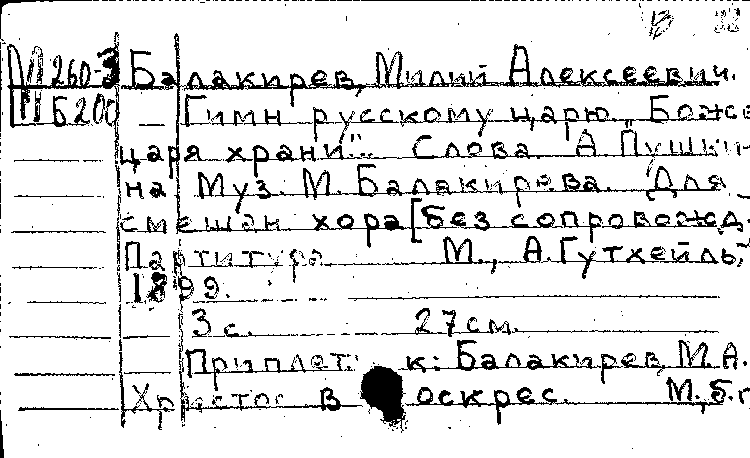 В 22
М 260-3 Балакирев, Милий Алексеевич.
М Б200 — Гимн русскому царю „Боже
царя храни"... Слова А Пушки-
на Муз. М. Балакирева. Для
смешан хора [без сопровожд.
Партитура М., А. Гутхейль,
1899.
3 с. 27 см.
Приплет. к: Балакирев, М.А.
Христос воскрес. М., б.г